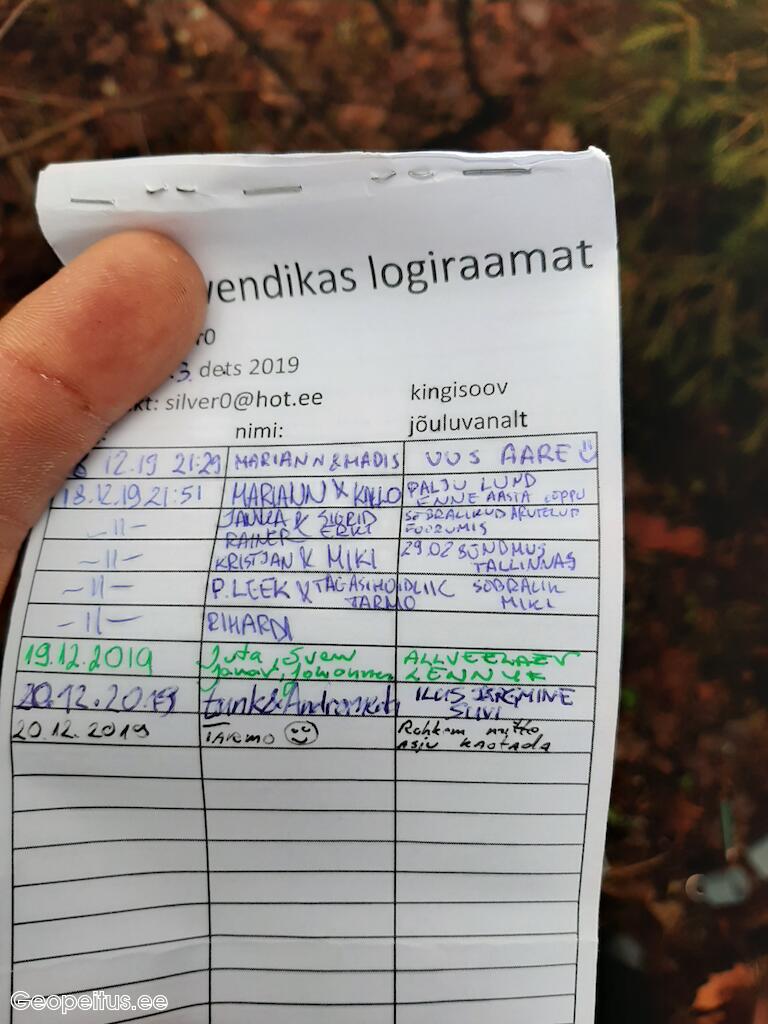 vendikas logiraamat
r0
3. dets 2019
kt: silver0@hot.ee
kingisoov
jõuluvanalt
nimi:
12.19 21:29 MARIANN & MADIS UUS AARE
18.12.19 21:51 MARIANN & KALLO PALJU LUND
ENNE AASTA LÕPPU
-11- JANKA & SIGRID SÕBRALIKUD ARUTELUD
RAINER ERKI FOORUMIS
-11- KRISTJAN & MIKI 29.02 SÜNDMUS
TALLINNAS
-11- P.LEEK & TAGASIHOIDLIK SÕBRALIK
TARMO MIKI
-11- RIHARDI
19.12.2019 Juta, Sven ALLVEELAEV
LENNUK
20.12.2019 ILUS JÄRGMINE
SUVI
20.12.2019 TARMO Rohkem mitte
asju kaotada
Geopeitus.ee